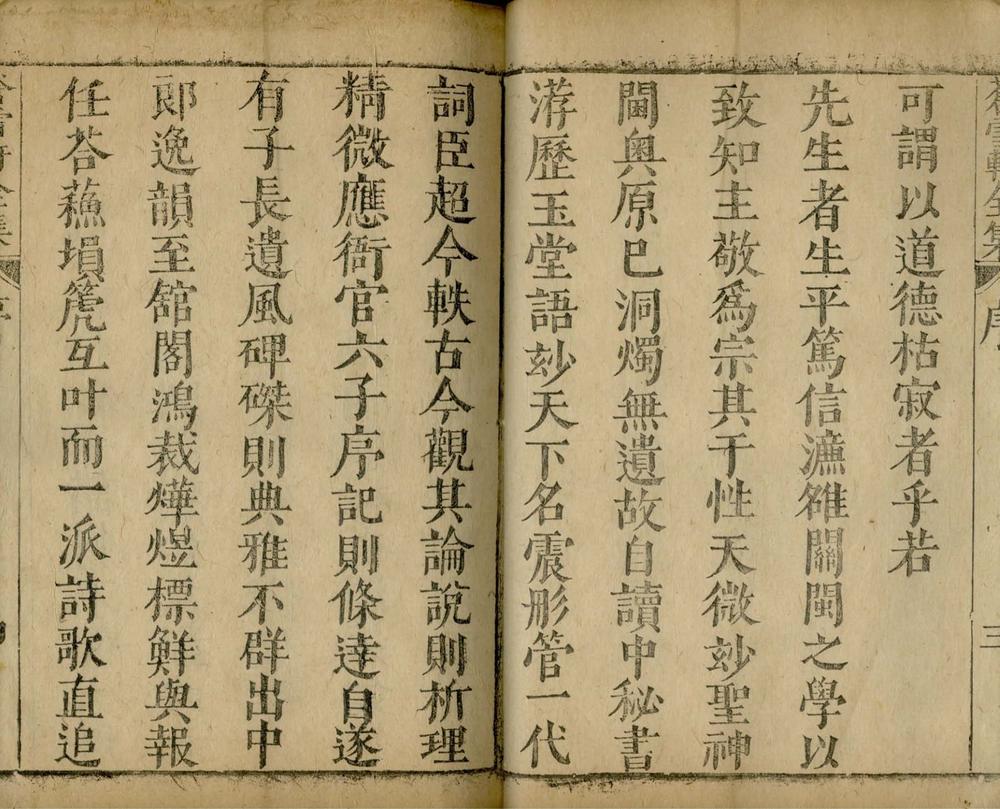 可謂以道德枯寂者乎若
先生者生平篤信濂雒關閩之學以
致知主敬爲宗其于性天微妙聖神
閫奧原已洞燭無遺故自讀中秘書
洊歷玉堂語玅天下名震彤管一代
詞臣超今軼古今觀其論說則析理
精微應衙官六子序記則條達自遂
有子長遺風碑磔則典雅不群出中
郎逸韻至舘閣鴻裁燁煜標鮮與報
任荅蘓塤箎互叶而一派詩歌直追
全集
序
三